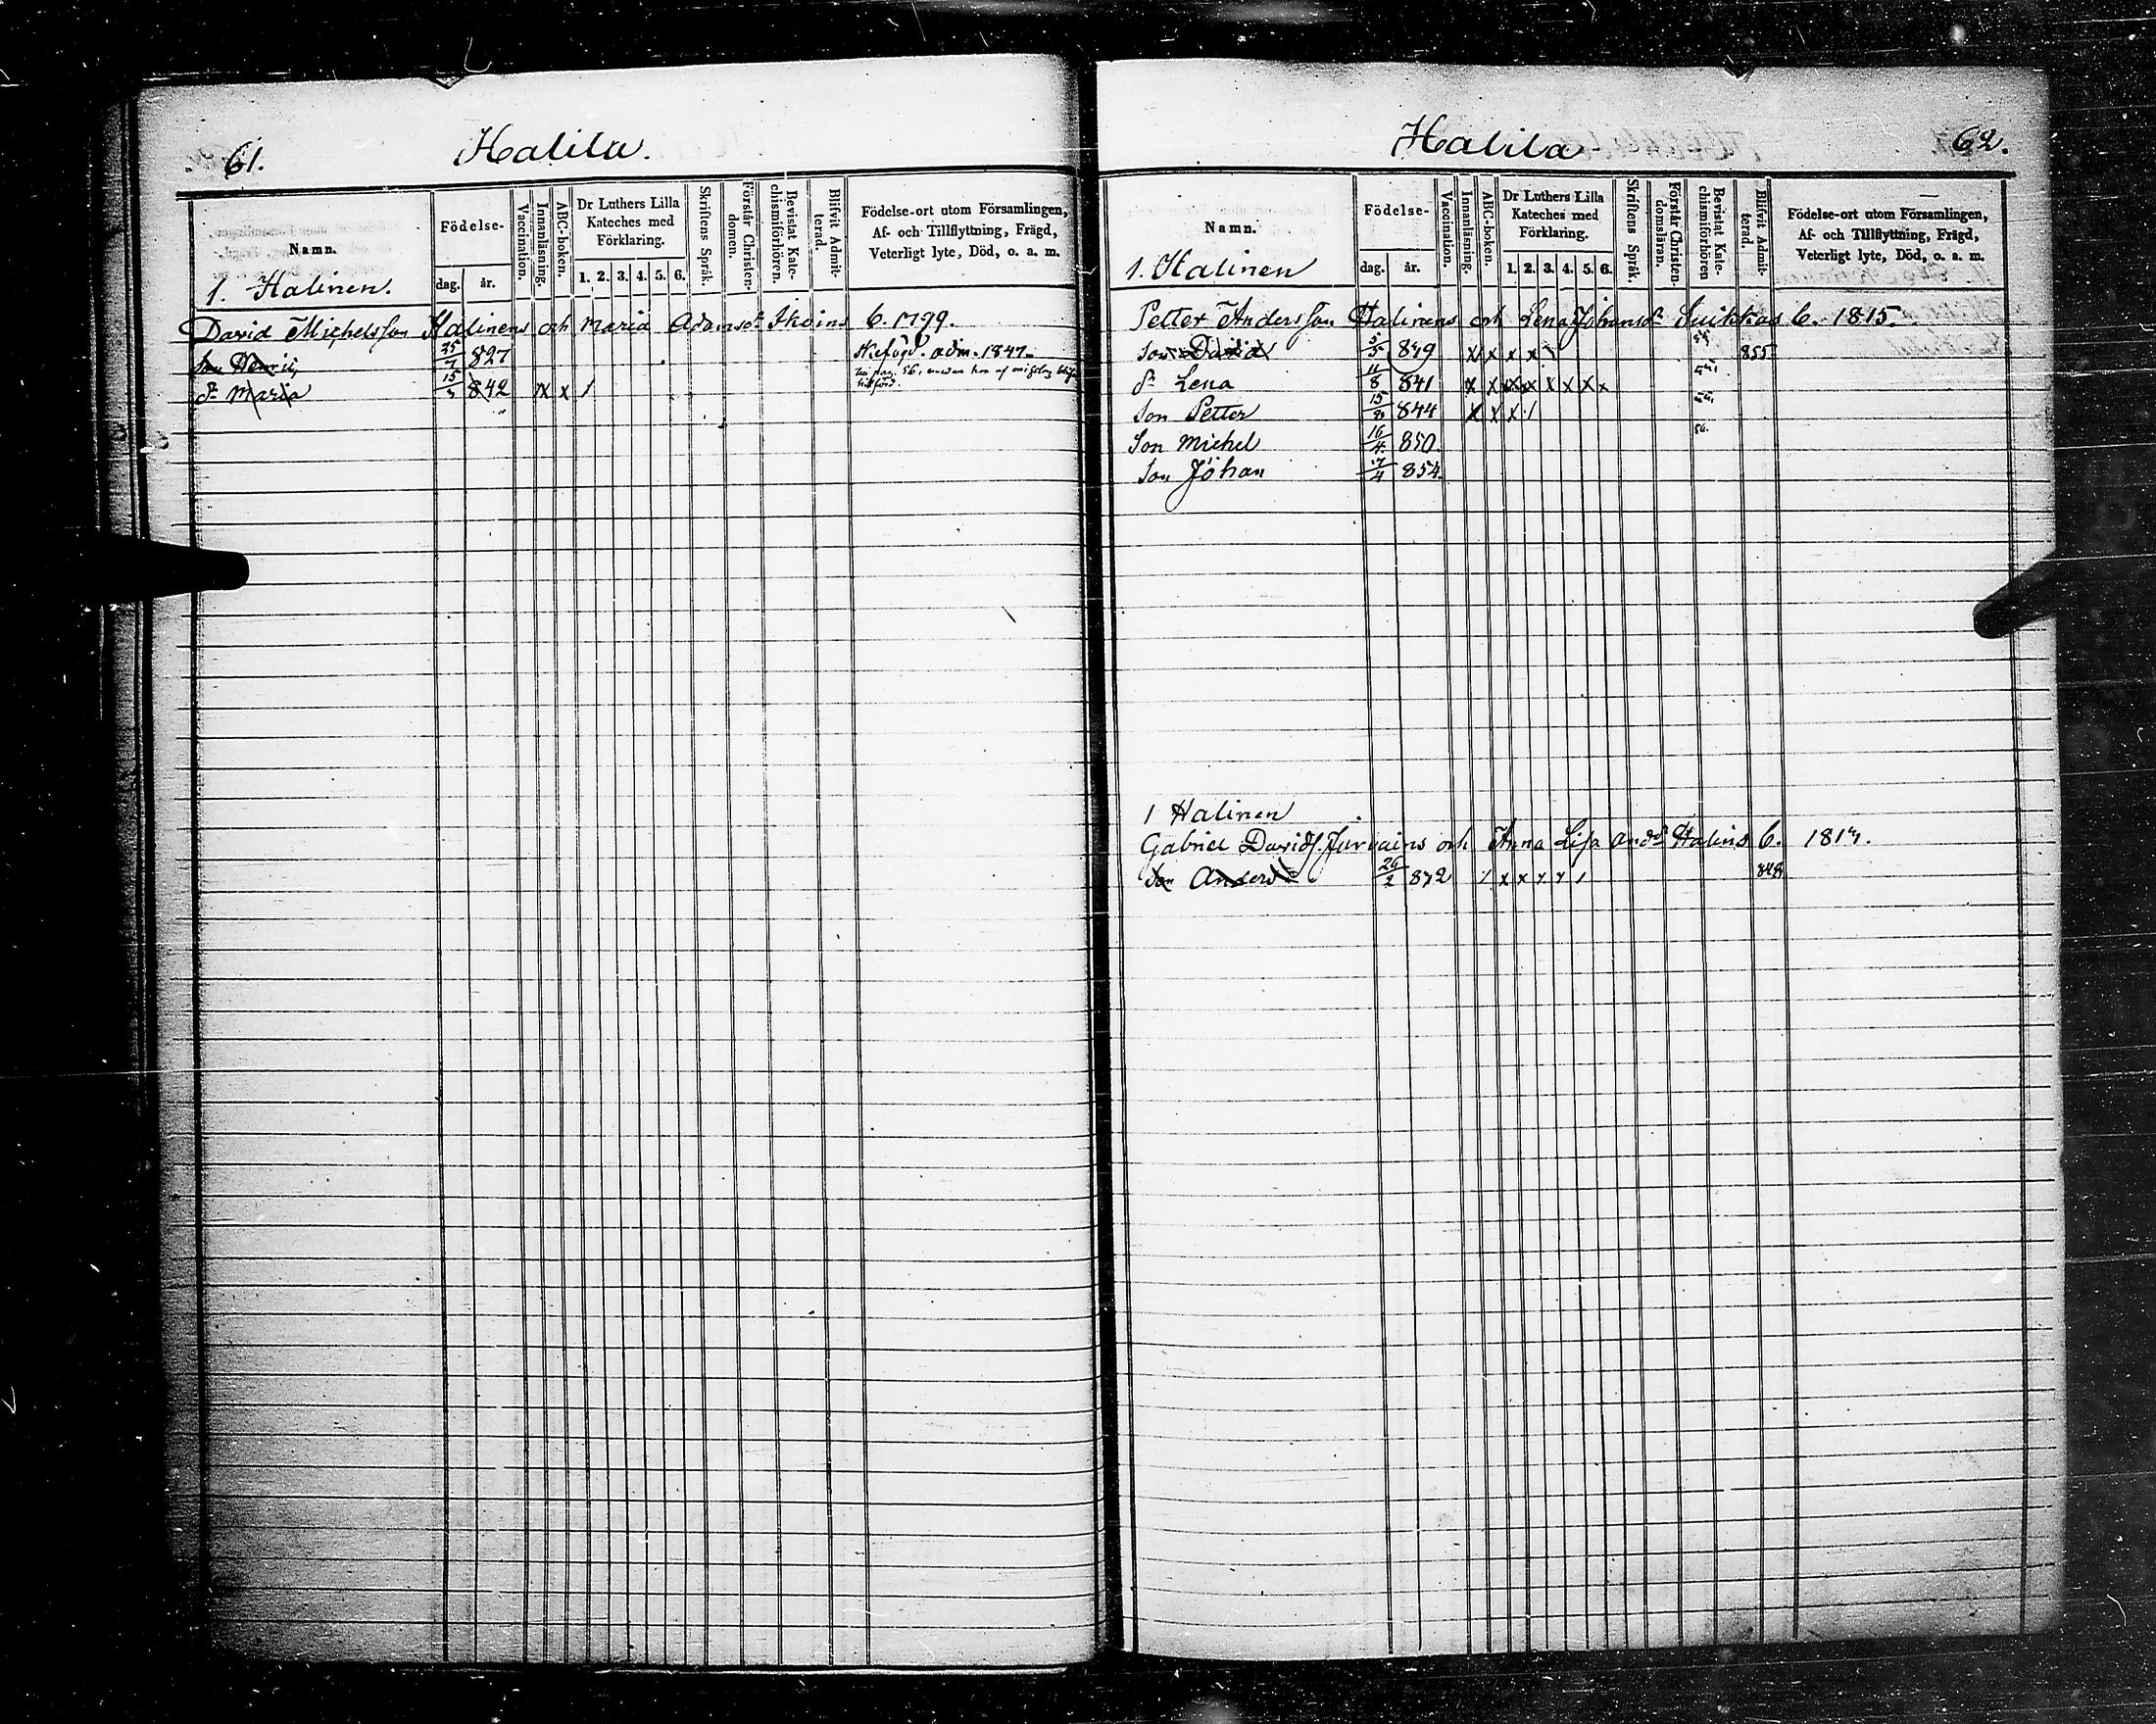 61.
Halila.
Namn.
1. Halinen.
Födelse-
dag. år.
Vaccination.
Innanläsning.
ABC-boken.
Dr Luthers Lilla
Kateches med
Förklaring.
1. 2. 3. 4. 5. 6.
Skriftens Språk.
Förstår Christen-
domen.
Bevistat Kate-
chismiförhören.
Blifvit Admit-
terad.
Födelse-ort utom Församlingen,
Af- och Tillflyttning, Frägd,
Veterligt lyte, Död, o. a. m.
David Michelsson Halinens och Maria Adamsdr 6. 1799.
Son Henric 25 827 adm. 1847.
dr Maria 15 842 x x / pag. 56.
62.
Halila
Namn.
1. Halinen
Födelse-
dag. år.
Vaccination.
Innanläsning.
ABC-boken.
Dr Luthers Lilla
Kateches med
Förklaring.
1. 2. 3. 4. 5. 6.
Skriftens Språk.
Förstår Christen-
domsläran.
Bevistat Kate-
chismiförhören
Blifvit Admit-
terad.
Födelse-ort utom Församlingen,
Af- och Tillflyttning, Frägd,
Veterligt lyte, Död, o. a. m.
Petter Andersson Halinens och Lena Johansdr Suikkas 6. 1815.
Son David 5/5 839 x x x x 855
dr Lena 11/8 841 x x x x x x x x
Son Petter 15 844 x x x /
Son Michel 16/4 850 56.
Son Johan 17/4 854.
1 Halinen
Gabriel Davids. och Anna Lisa Andsdr Halins 6. 1817.
Son Anders 26/2 832 848